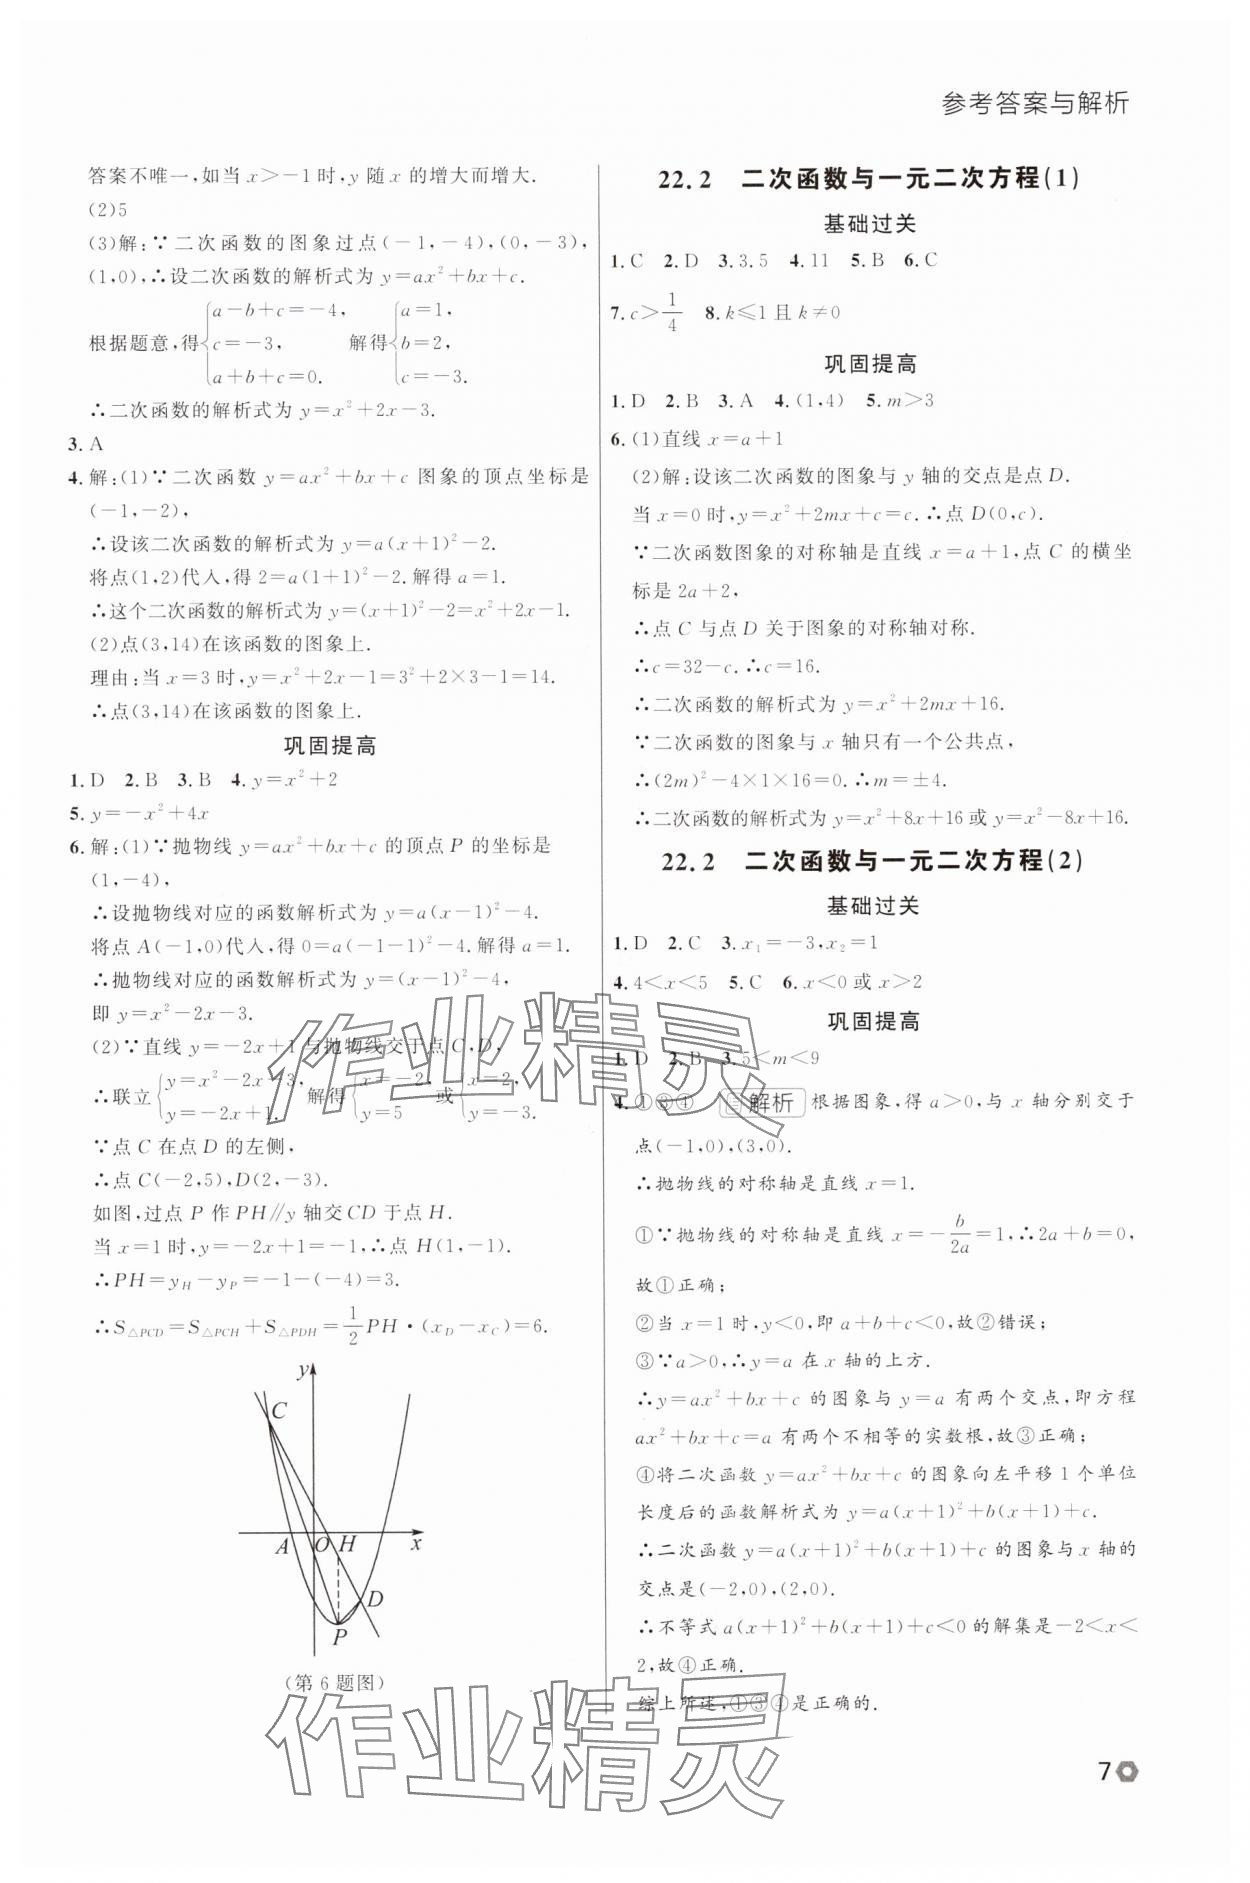 参考答案与解析
答案不唯一,如当 x>-1时,y 随 x 的增大而增大.
(2)5
(3)解:∵二次函数的图象过点(-1,-4),(0,-3),
(1,0),∴设二次函数的解析式为 y=ax²+bx+c.
根据题意,得{a-b+c=-4, c=-3, a+b+c=0. 解得{a=1, b=2, c=-3.
∴二次函数的解析式为 y=x²+2x-3.
3. A
4. 解:(1)∵二次函数 y=ax²+bx+c 图象的顶点坐标是
(-1,-2),
∴设该二次函数的解析式为 y=a(x+1)²-2.
将点(1,2)代入,得 2=a(1+1)²-2.解得 a=1.
∴这个二次函数的解析式为 y=(x+1)²-2=x²+2x-1.
(2)点(3,14)在该函数的图象上.
理由:当 x=3 时,y=x²+2x-1=3²+2×3-1=14.
∴点(3,14)在该函数的图象上.
巩固提高
1. D 2. B 3. B 4. y=x²+2
5. y=-x²+4x
6. 解:(1)∵抛物线 y=ax²+bx+c 的顶点 P 的坐标是
(1,-4),
∴设抛物线对应的函数解析式为 y=a(x-1)²-4.
将点 A(-1,0)代入,得 0=a(-1-1)²-4.解得 a=1.
∴抛物线对应的函数解析式为 y=(x-1)²-4,
即 y=x²-2x-3.
(2)∵直线 y=-2x+1 与抛物线交于点 C,D,
∴联立{y=x²-2x-3, y=-2x+1. 解得{x=-2, y=5 或{x=2, y=-3.
∵点 C 在点 D 的左侧,
∴点 C(-2,5),D(2,-3).
如图,过点 P 作 PH∥y 轴交CD 于点 H.
当 x=1 时,y=-2x+1=-1,∴点 H(1,-1).
∴PH=y_H-y_P=-1-(-4)=3.
∴S△PCD=S△PCH+S△PDH=1/2 PH·(x_D-x_C)=6.
y
C
A O H x
D
P
(第 6 题图)
22.2 二次函数与一元二次方程(1)
基础过关
1. C 2. D 3. 3.5 4. 11 5. B 6. C
7. c>1/4 8. k≤1 且 k≠0
巩固提高
1. D 2. B 3. A 4. (1,4) 5. m>3
6. (1)直线 x=a+1
(2)解:设该二次函数的图象与 y 轴的交点是点 D.
当 x=0 时,y=x²+2mx+c=c.∴点 D(0,c).
∵二次函数图象的对称轴是直线 x=a+1,点 C 的横坐
标是 2a+2,
∴点 C 与点 D 关于图象的对称轴对称.
∴c=32-c.∴c=16.
∴二次函数的解析式为 y=x²+2mx+16.
∵二次函数的图象与 x 轴只有一个公共点,
∴(2m)²-4×1×16=0.∴m=±4.
∴二次函数的解析式为 y=x²+8x+16 或 y=x²-8x+16.
22.2 二次函数与一元二次方程(2)
基础过关
1. D 2. C 3. x₁=-3,x₂=1
4. 4<x<5 5. C 6. x<0 或 x>2
巩固提高
1. D 2. B 3. 5<m<9
4. ①③④ 解析 根据图象,得 a>0,与 x 轴分别交于
点(-1,0),(3,0).
∴抛物线的对称轴是直线 x=1.
①∵抛物线的对称轴是直线 x=-b/2a=1,∴2a+b=0,
故①正确;
②当 x=1 时,y<0,即 a+b+c<0,故②错误;
③∵a>0,∴y=a 在 x 轴的上方.
∴y=ax²+bx+c 的图象与 y=a 有两个交点,即方程
ax²+bx+c=a 有两个不相等的实数根,故③正确;
④将二次函数 y=ax²+bx+c 的图象向左平移 1 个单位
长度后的函数解析式为 y=a(x+1)²+b(x+1)+c.
∴二次函数 y=a(x+1)²+b(x+1)+c 的图象与 x 轴的
交点是(-2,0),(2,0).
∴不等式 a(x+1)²+b(x+1)+c<0 的解集是-2<x<
2,故④正确.
综上所述,①③④是正确的.
作业精灵
作业精灵
7